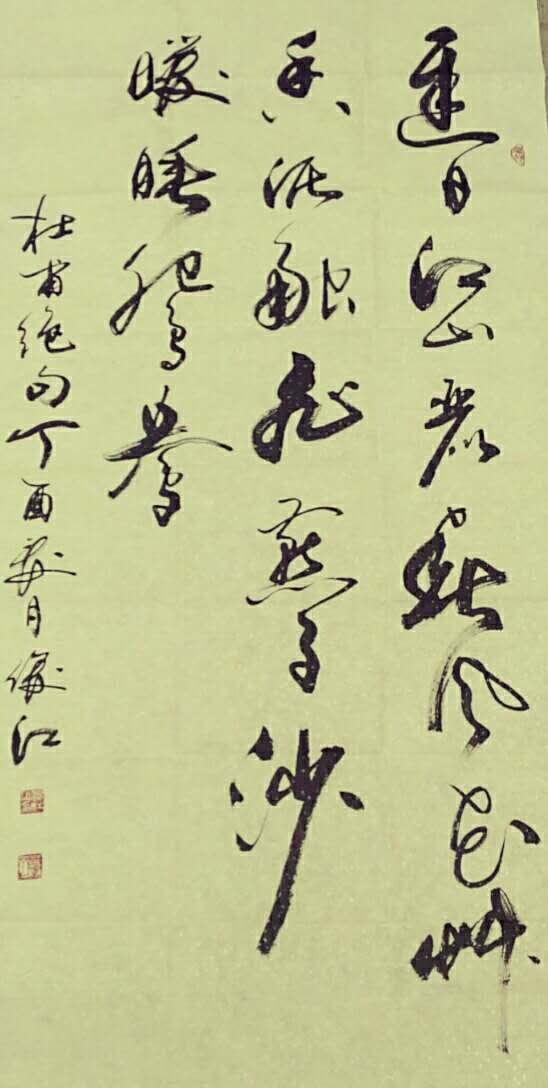 遲日江山麗春风花艸
香泥融飛燕子沙
暖睡鴛鴦
杜甫绝句丁酉月江